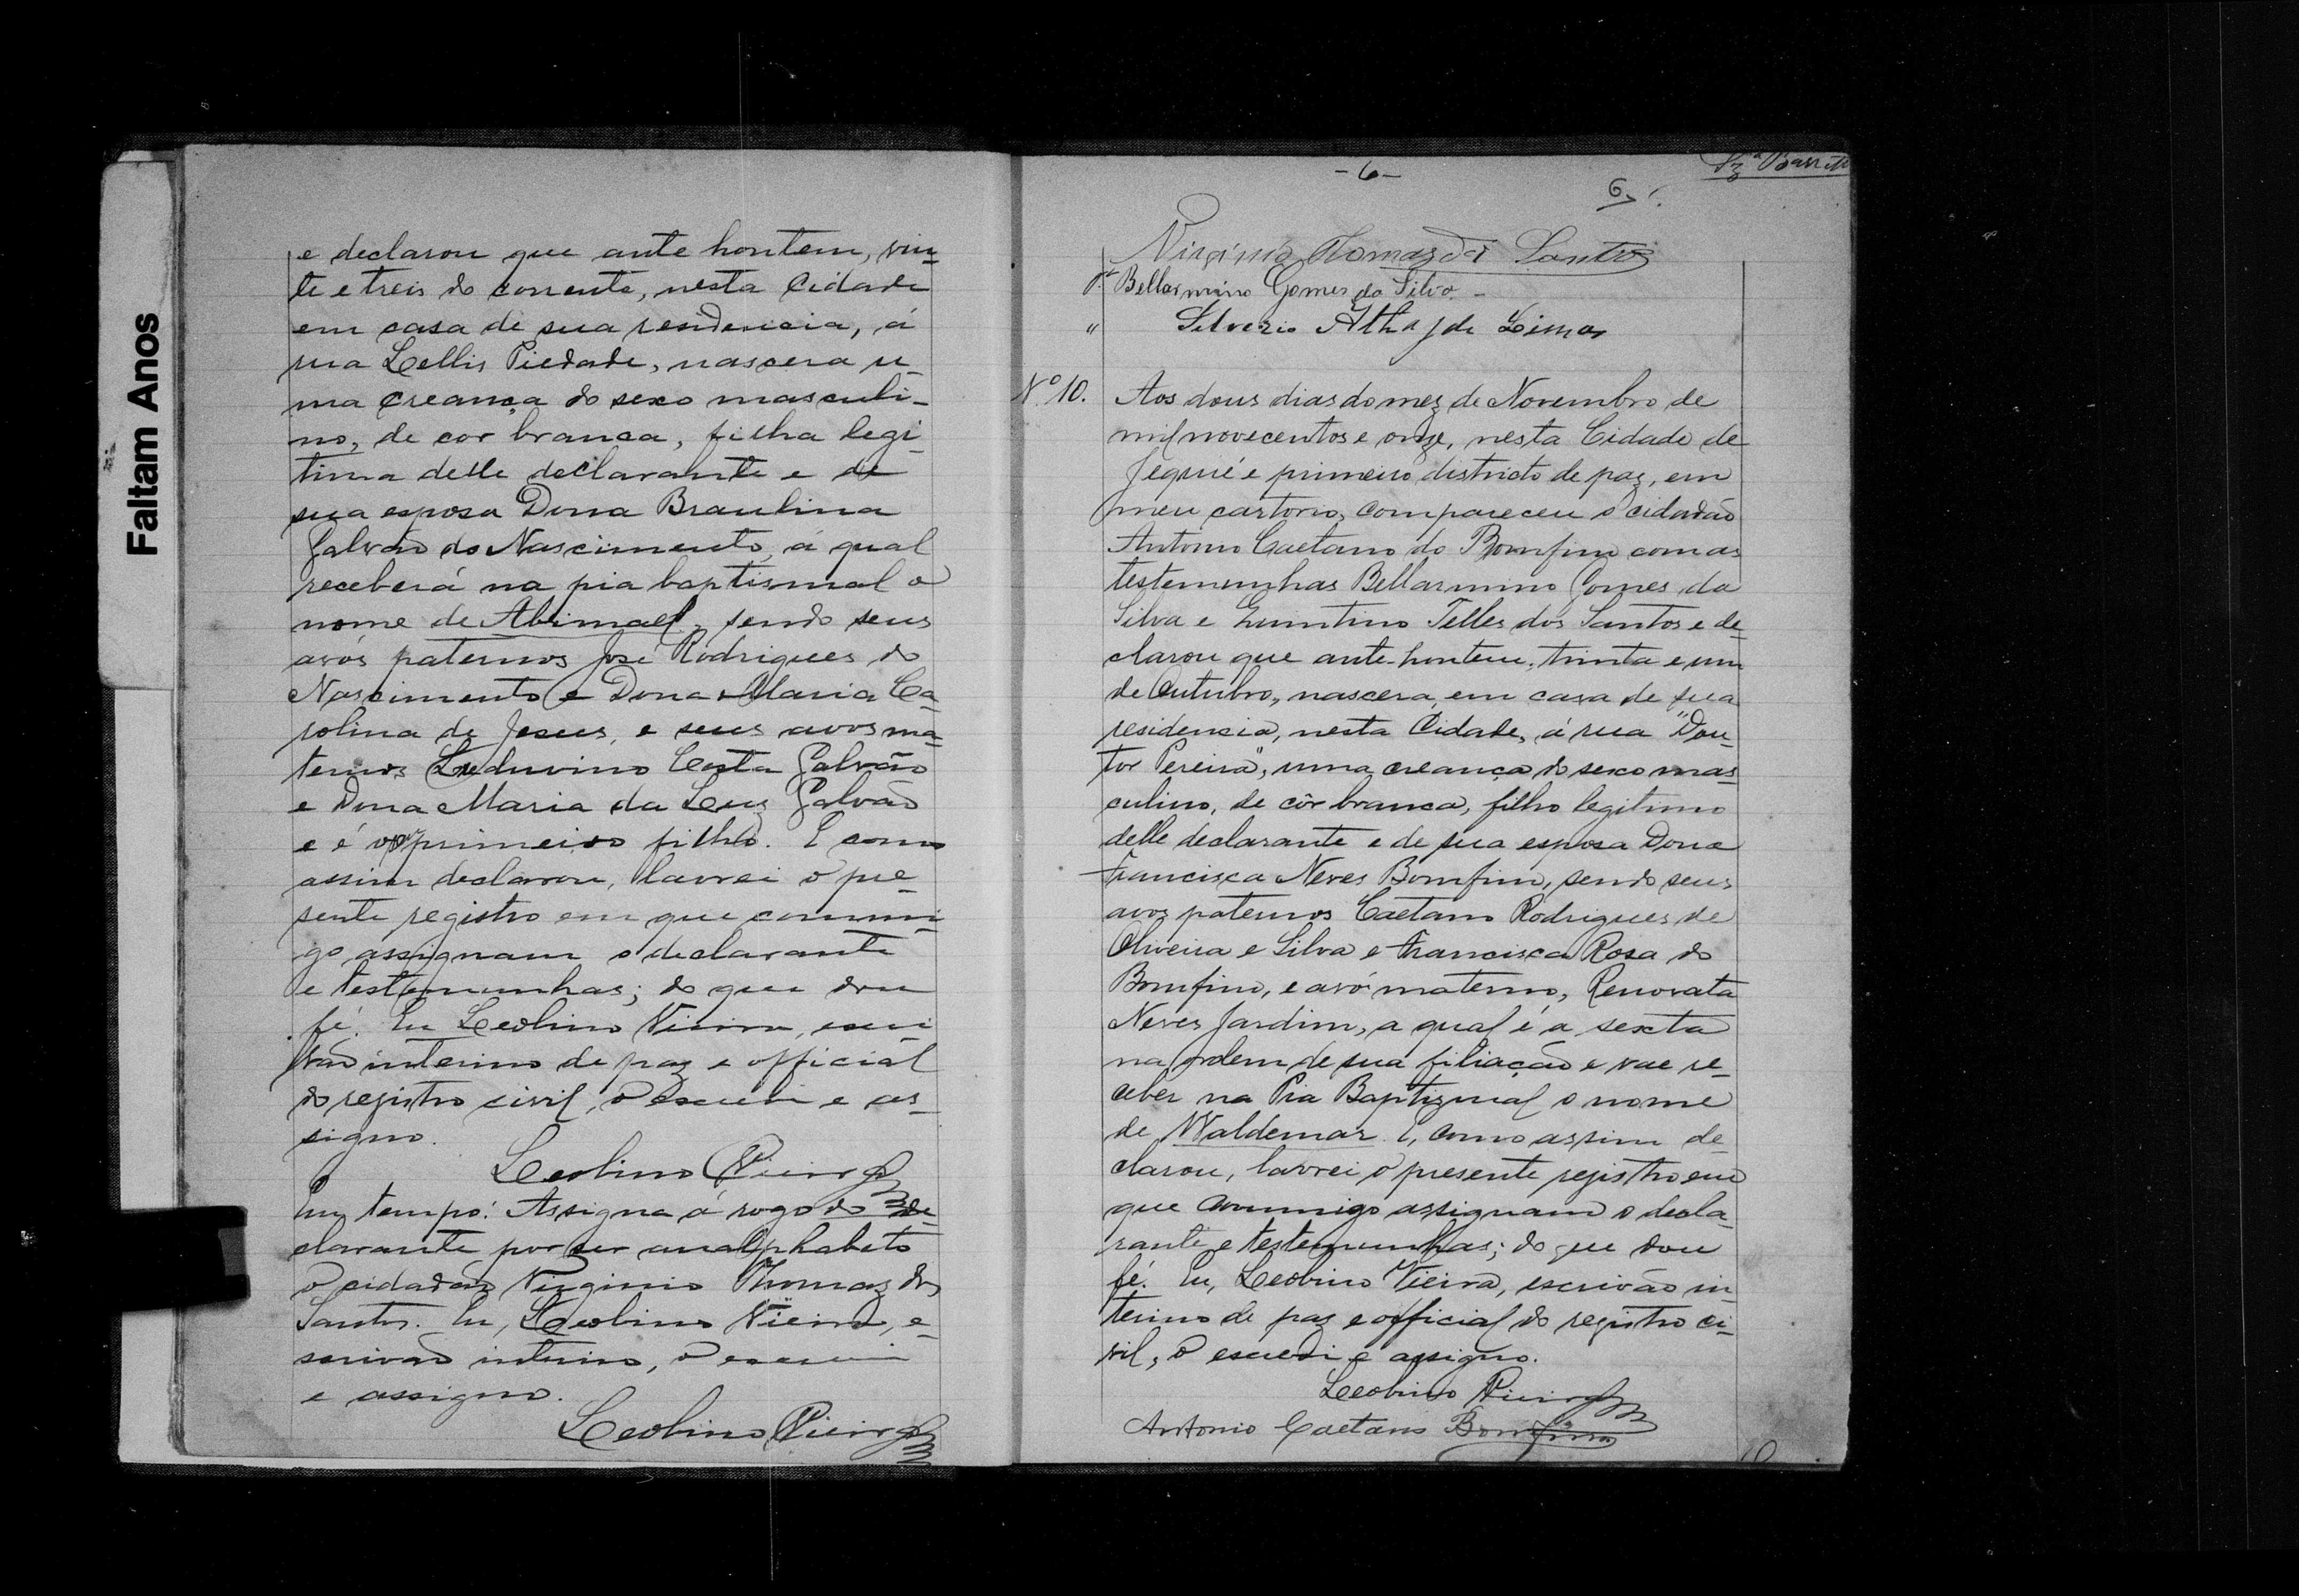 Faltam Anos
e declarou que ante hontem, vin-
te e treis do corrente, nesta Cidade
em casa de sua residencia, á
rua Lellis Piedade, nascera u-
ma creança do sexo masculi-
no, de cor branca, filha legi-
tima delle declarante e de
sua esposa Dona Braulina
Galvão do Nascimento, a qual
receberá na pia baptismal o
nome de Abimael, sendo seus
avós paternos José Rodrigues do
Nascimento e Dona Maria Ca-
rolina de Jesus, e seus avos ma-
ternos Luduvino Costa Galvão
e Dona Maria da Luz Galvão
e é o primeiro filho. E como
assim declarou, lavrei o pre-
sente registro em que commi-
go assignam o declarante
e testemunhas; do que dou
fé. Eu Leolino Vieira, escri-
vão interino de paz e official
do registro civil, o escrevi e as-
signo.
Leolino Vieira
Em tempo: Assigna á rogo do de-
clarante por ser analphabeto
o cidadão Virginio Thomaz dos
Santos. Eu, Leolino Vieira, e-
scrivão interino, o escrevi
e assigno.
Leolino Vieira
- 6 -
6
Virginio Tomaz dos Santos
T. Bellarmino Gomes da Silva. -
" Silverio Athayde Lima
Nº 10. Aos dous dias do mez de Novembro de
mil novecentos e onze, nesta Cidade de
Jequié e primeiro districto de paz, em
meu cartorio, compareceu o cidadão
Antonio Caetano do Bomfim com as
testemunhas Bellarmino Gomes da
Silva e Quintino Telles dos Santos e de-
clarou que ante-hontem, trinta e um
de Outubro, nascera, em casa de sua
residencia, nesta Cidade, á rua "Dou-
tor Pereira", uma creança do sexo mas-
culino, de côr branca, filho legitimo
delle declarante e de sua esposa Dona
Francisca Neves Bomfim, sendo seus
avos paternos Caetano Rodrigues de
Oliveira e Silva e Francisca Rosa do
Bomfim, e avó materno, Renovata
Neves Jardim, a qual é a sexta
na ordem de sua filiação e vae re-
ceber na Pia Baptizmal o nome
de Waldemar. E, como assim de-
clarou, lavrei o presente registro em
que commigo assignam o decla-
rante e testemunhas; do que dou
fé. Eu, Leolino Vieira, escrivão in-
terino de paz e official do registro ci-
vil, o escrevi e assigno.
Leolino Vieira
Antonio Caetano Bomfim